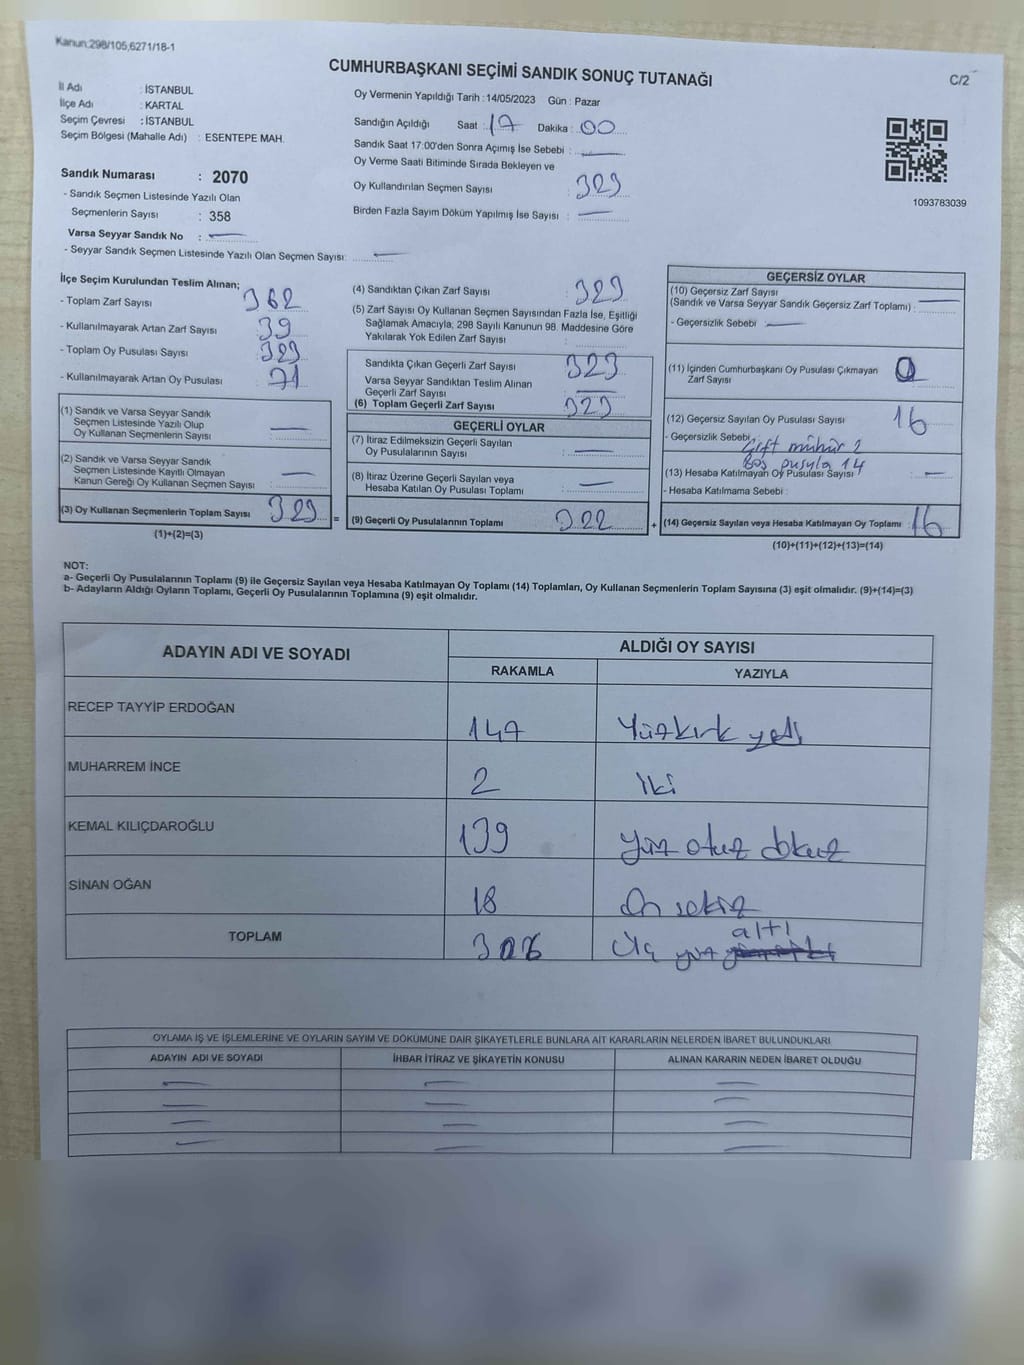 Kanun;298/105,6271/18-1
CUMHURBAŞKANI SEÇİMİ SANDIK SONUÇ TUTANAĞI
C/2
İl Adı : İSTANBUL
İlçe Adı : KARTAL
Seçim Çevresi : İSTANBUL
Seçim Bölgesi (Mahalle Adı) : ESENTEPE MAH.
Sandık Numarası : 2070
- Sandık Seçmen Listesinde Yazılı Olan
Seçmenlerin Sayısı : 358
Varsa Seyyar Sandık No :
- Seyyar Sandık Seçmen Listesinde Yazılı Olan Seçmen Sayısı:
Oy Vermenin Yapıldığı Tarih : 14/05/2023 Gün : Pazar
Sandığın Açıldığı Saat : 17 Dakika : 00
Sandık Saat 17:00'den Sonra Açımış İse Sebebi :
Oy Verme Saati Bitiminde Sırada Bekleyen ve
Oy Kullandırılan Seçmen Sayısı : 323
Birden Fazla Sayım Döküm Yapılmış İse Sayısı :
1093783039
İlçe Seçim Kurulundan Teslim Alınan;
- Toplam Zarf Sayısı 362
- Kullanılmayarak Artan Zarf Sayısı 39
- Toplam Oy Pusulası Sayısı 323
- Kullanılmayarak Artan Oy Pusulası : 71
(1) Sandık ve Varsa Seyyar Sandık
Seçmen Listesinde Yazılı Olup
Oy Kullanan Seçmenlerin Sayısı :
(2) Sandık ve Varsa Seyyar Sandık
Seçmen Listesinde Kayıtlı Olmayan
Kanun Gereği Oy Kullanan Seçmen Sayısı :
(3) Oy Kullanan Seçmenlerin Toplam Sayısı 323 =
(1)+(2)=(3)
(4) Sandıktan Çıkan Zarf Sayısı : 323
(5) Zarf Sayısı Oy Kullanan Seçmen Sayısından Fazla İse, Eşitliği
Sağlamak Amacıyla; 298 Sayılı Kanunun 98. Maddesine Göre
Yakılarak Yok Edilen Zarf Sayısı :
Sandıkta Çıkan Geçerli Zarf Sayısı 323
Varsa Seyyar Sandıktan Teslim Alınan
Geçerli Zarf Sayısı
(6) Toplam Geçerli Zarf Sayısı 323
GEÇERLİ OYLAR
(7) İtiraz Edilmeksizin Geçerli Sayılan
Oy Pusulalarının Sayısı :
(8) İtiraz Üzerine Geçerli Sayılan veya
Hesaba Katılan Oy Pusulası Toplamı :
(9) Geçerli Oy Pusulalarının Toplamı 322 +
GEÇERSİZ OYLAR
(10) Geçersiz Zarf Sayısı
(Sandık ve Varsa Seyyar Sandık Geçersiz Zarf Toplamı) :
- Geçersizlik Sebebi :
(11) İçinden Cumhurbaşkanı Oy Pusulası Çıkmayan
Zarf Sayısı : 0
(12) Geçersiz Sayılan Oy Pusulası Sayısı 16
- Geçersizlik Sebebi Çift mühür 2
boş pusula 14
(13) Hesaba Katılmayan Oy Pusulası Sayısı :
- Hesaba Katılmama Sebebi :
(14) Geçersiz Sayılan veya Hesaba Katılmayan Oy Toplamı : 16
(10)+(11)+(12)+(13)=(14)
NOT:
a- Geçerli Oy Pusulalarının Toplamı (9) ile Geçersiz Sayılan veya Hesaba Katılmayan Oy Toplamı (14) Toplamları, Oy Kullanan Seçmenlerin Toplam Sayısına (3) eşit olmalıdır. (9)+(14)=(3)
b- Adayların Aldığı Oyların Toplamı, Geçerli Oy Pusulalarının Toplamına (9) eşit olmalıdır.
ADAYIN ADI VE SOYADI
ALDIĞI OY SAYISI
RAKAMLA YAZIYLA
RECEP TAYYİP ERDOĞAN 147 Yüzkırk yedi
MUHARREM İNCE 2 İki
KEMAL KILIÇDAROĞLU 139 yüz otuz dokuz
SİNAN OĞAN 18 On sekiz
TOPLAM 306 Üç yüz altı
OYLAMA İŞ VE İŞLEMLERİNE VE OYLARIN SAYIM VE DÖKÜMÜNE DAİR ŞİKAYETLERLE BUNLARA AİT KARARLARIN NELERDEN İBARET BULUNDUKLARI
ADAYIN ADI VE SOYADI İHBAR İTİRAZ VE ŞİKAYETİN KONUSU ALINAN KARARIN NEDEN İBARET OLDUĞU